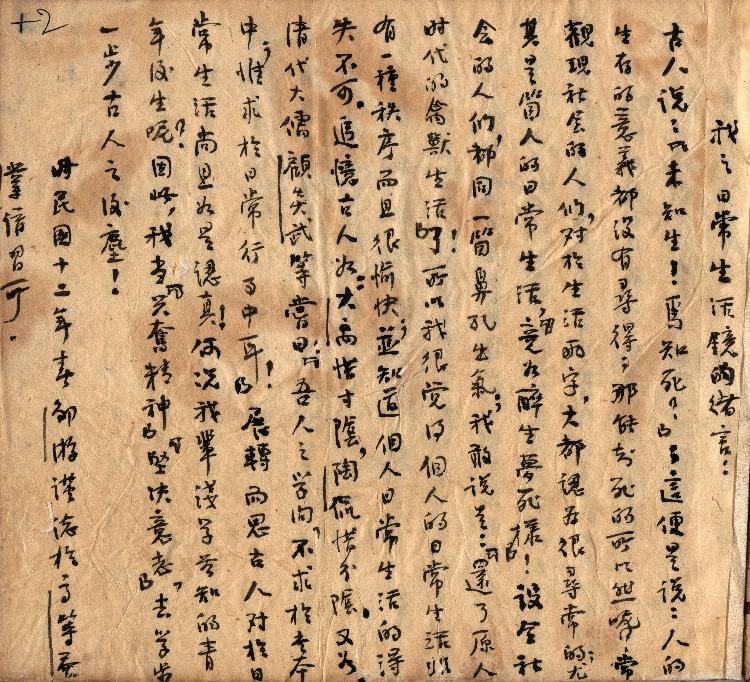 我之日常生活鏡的緒言：
古人說：「未知生！焉知死？」這便是說：人的
生存的意義都沒有尋得；那能知死的所以然呢？常
觀現社會的人們，對於生活兩字，大都認為很尋常的；尤
其是箇人的日常生活，竟如「醉生夢死」樣！設令社
會的人們，都同一箇鼻孔出氣；我敢說是：「還了原人
時代的禽獸生活」了！所以我很覺得個人的日常生活非
有一種秩序而且很愉快；並知道個人日常生活的得
失不可。追憶古人如：大禹惜寸陰，陶侃惜分陰，又如
清代大儒顧炎武等嘗曰：「吾人之學問，不求於
中，惟求於日常行事中耳！」展轉而思古人對於日
常生活尚且如是認真！何況我輩淺學無知的青
年後生呢？因此，我当「興奮精神」「堅決意志」，去學步
一步古人之後塵！
時民國十二年春 游謹誌於高等
學 習
+2